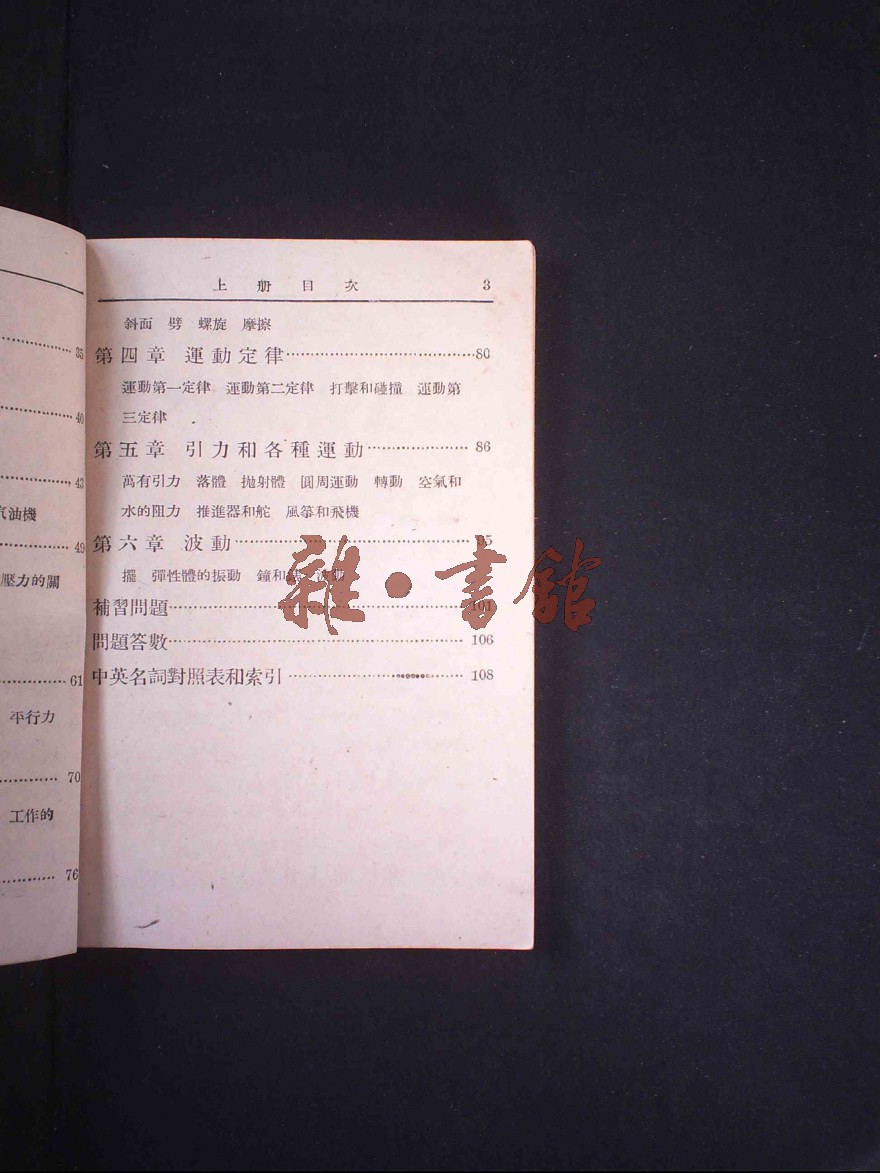 35
40
43
汽油機
49
壓力的關
61
平行力
70
工作的
76
上册目次 3
斜面 劈 螺旋 摩擦
第四章 運動定律……80
運動第一定律 運動第二定律 打擊和碰撞 運動第
三定律
第五章 引力和各種運動……86
萬有引力 落體 拋射體 圓周運動 轉動 空氣和
水的阻力 推進器和舵 風箏和飛機
第六章 波動……95
擺 彈性體的振動 鐘和
補習問題……101
問題答數……106
中英名詞對照表和索引……108
雜·書館